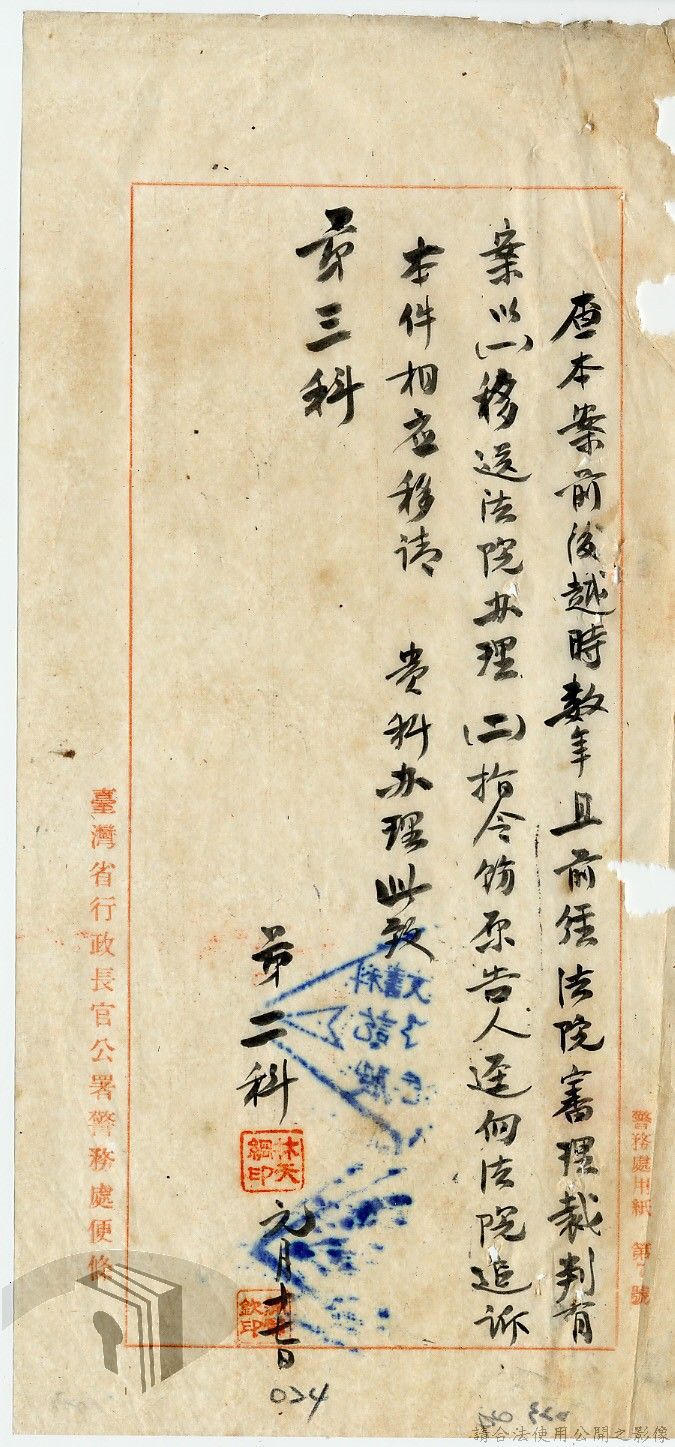 查本案前後越時数年且前經法院審理裁判有
案以(一)移送法院办理(二)指令飭原告人逕向法院追訴
本件相应移請 貴科办理此致
第三科
第二科
林天綱印
元月十七日
欽印
024
臺灣省行政長官公署警務處便條
警務處用紙 第 號
請合法使用公開之影像